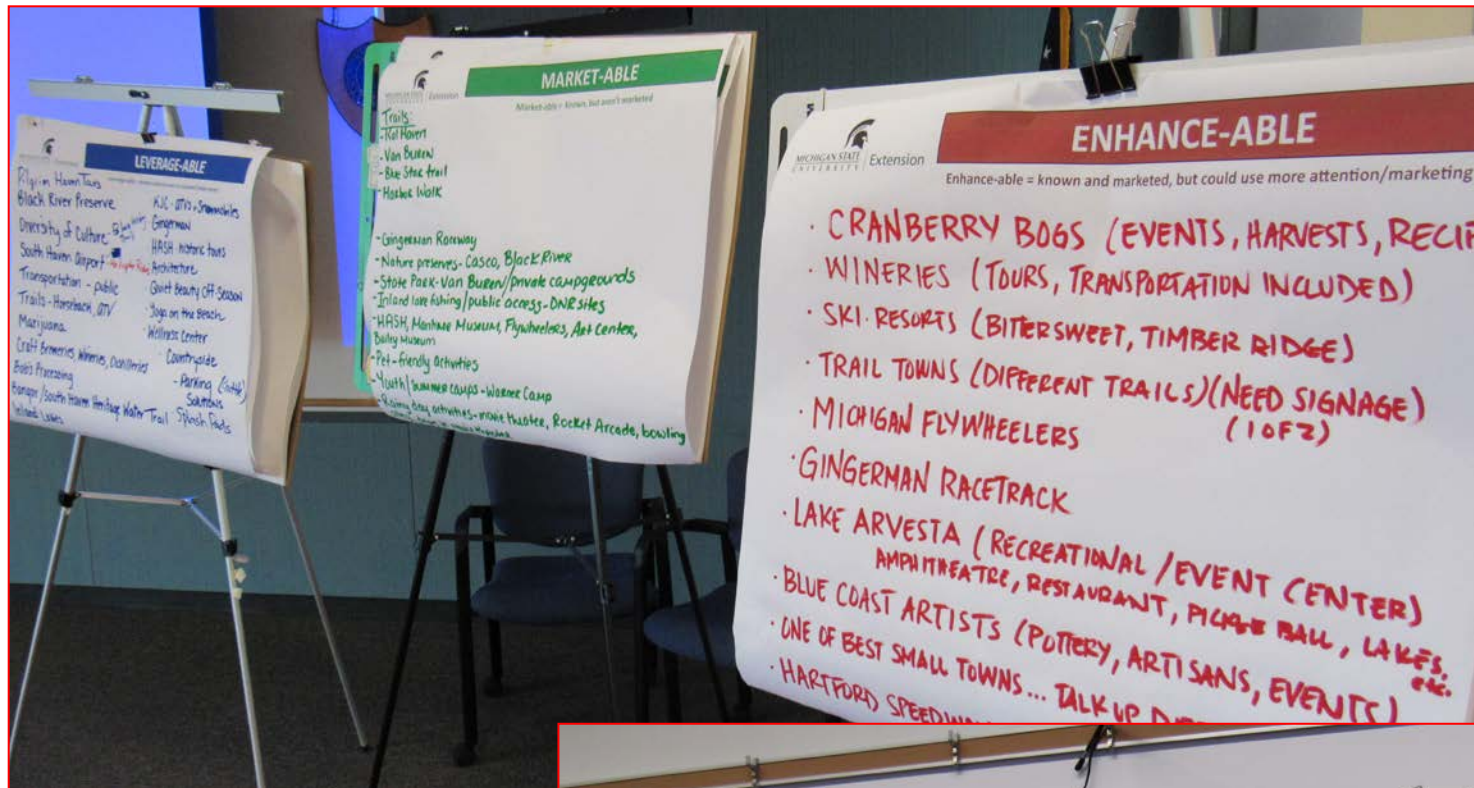 MICHIGAN STATE
UNIVERSITY Extension
LEVERAGE-ABLE
Pilgrim Haven Tours
Black River Preserve
Diversity of Culture
South Haven Airport
Transportation - public
Trails - Horseback, ATV
Marijuana
Craft Breweries, Wineries, Distilleries
Bob's Processing
Bangor/South Haven Heritage Water Trail
Inland Lakes
KJC - ATVs + Snowmobiles
Gingerman
HASH historic tours
Architecture
Quiet Beauty Off-Season
Yoga on the Beach
Wellness Center
Countryside
- Parking
Solutions
Splash Pads
MICHIGAN STATE
UNIVERSITY Extension
MARKET-ABLE
Market-able = Known, but aren't marketed
Trails:
- Kal Haven
- Van Buren
- Blue Star trail
- Harbor Walk
- Gingerman Raceway
- Nature preserves - Casco, Black River
- State Park - Van Buren/private campgrounds
- Inland lake fishing/public access - DNR sites
- HASH, Maritime Museum, Flywheelers, Art Center,
Bailey Museum
- Pet-friendly activities
- Youth/summer camps - Warner Camp
- Rainy day activities - movie theater, Rocket Arcade, bowling
MICHIGAN STATE
UNIVERSITY Extension
ENHANCE-ABLE
Enhance-able = known and marketed, but could use more attention/marketing
· CRANBERRY BOGS (EVENTS, HARVESTS, RECIP
· WINERIES (TOURS, TRANSPORTATION INCLUDED)
· SKI RESORTS (BITTERSWEET, TIMBER RIDGE)
· TRAIL TOWNS (DIFFERENT TRAILS) (NEED SIGNAGE)
(1 OF 2)
· MICHIGAN FLYWHEELERS
· GINGERMAN RACETRACK
· LAKE ARVESTA (RECREATIONAL / EVENT CENTER)
AMPHITHEATRE, RESTAURANT, PICKLE BALL, LAKES, etc.
· BLUE COAST ARTISTS (POTTERY, ARTISANS, EVENTS)
· ONE OF BEST SMALL TOWNS... TALK UP
· HARTFORD SPEEDWA